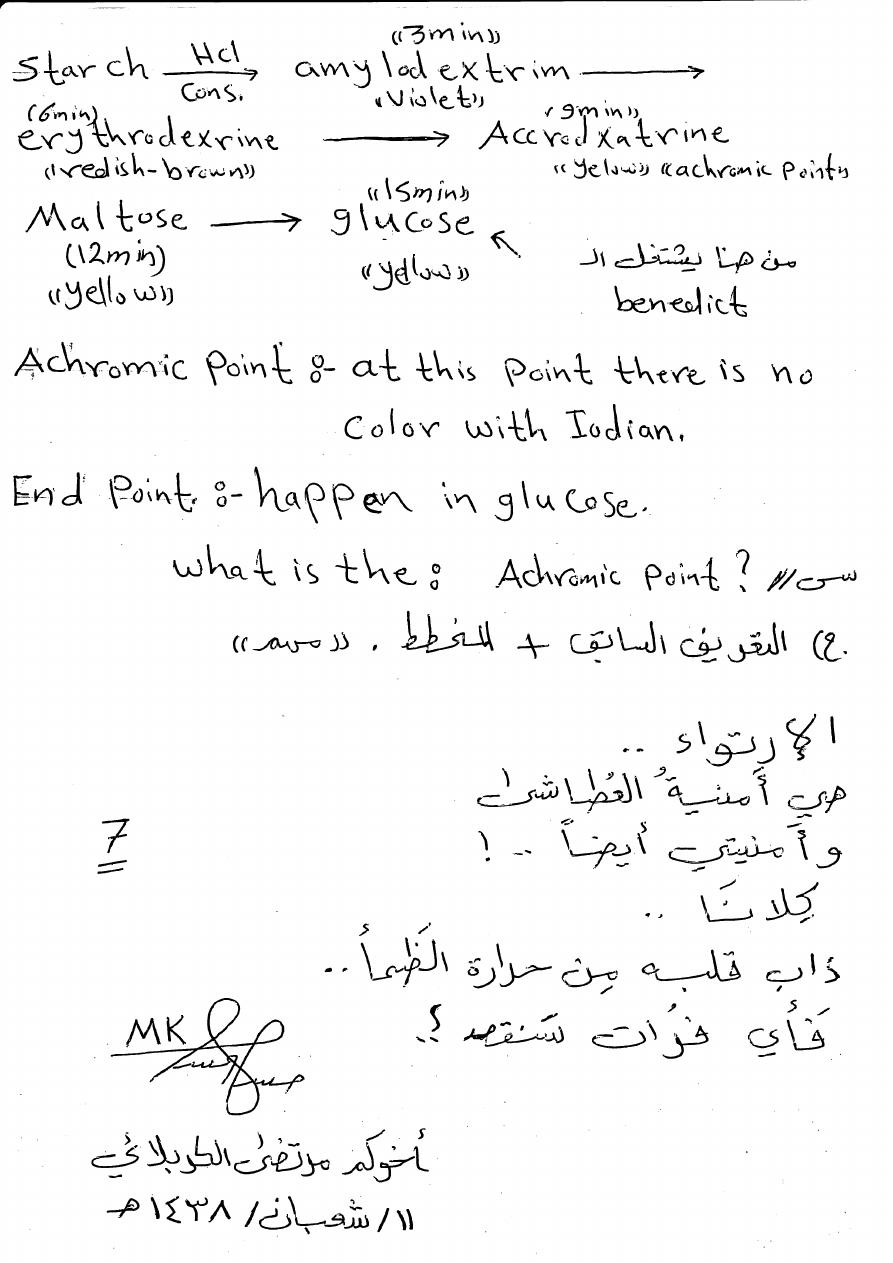 «3min»
Starch HCl Cons. → amylodextrim →
«Violet»
(6min) «9min»
erythrodexrine → Accrodxatrine
«redish-brown» «yelow» «achromic Point»
«15min»
Maltose → glucose
(12min) «yellow»
«yellow»
من هنا يشتغل الـ
benedict
Achromic Point :- at this point there is no
Color with Iodian.
End Point. :- happen in glucose.
What is the : Achromic Point? س//
ج) التعريف السابق + المخطط . «مهم»
الإرتواء ..
هي أَمنيةُ العُطاشى
وأَمنيتي أيضاً .. !
كِلانَا ..
7
ذاب قلبه مِن حرارة الظَمأ ..
فَأي فُرات سَنقصد ؟..
MK
أخوكم مرتضى الكربلائي
١١/شعبان/١٤٣٨ هـ